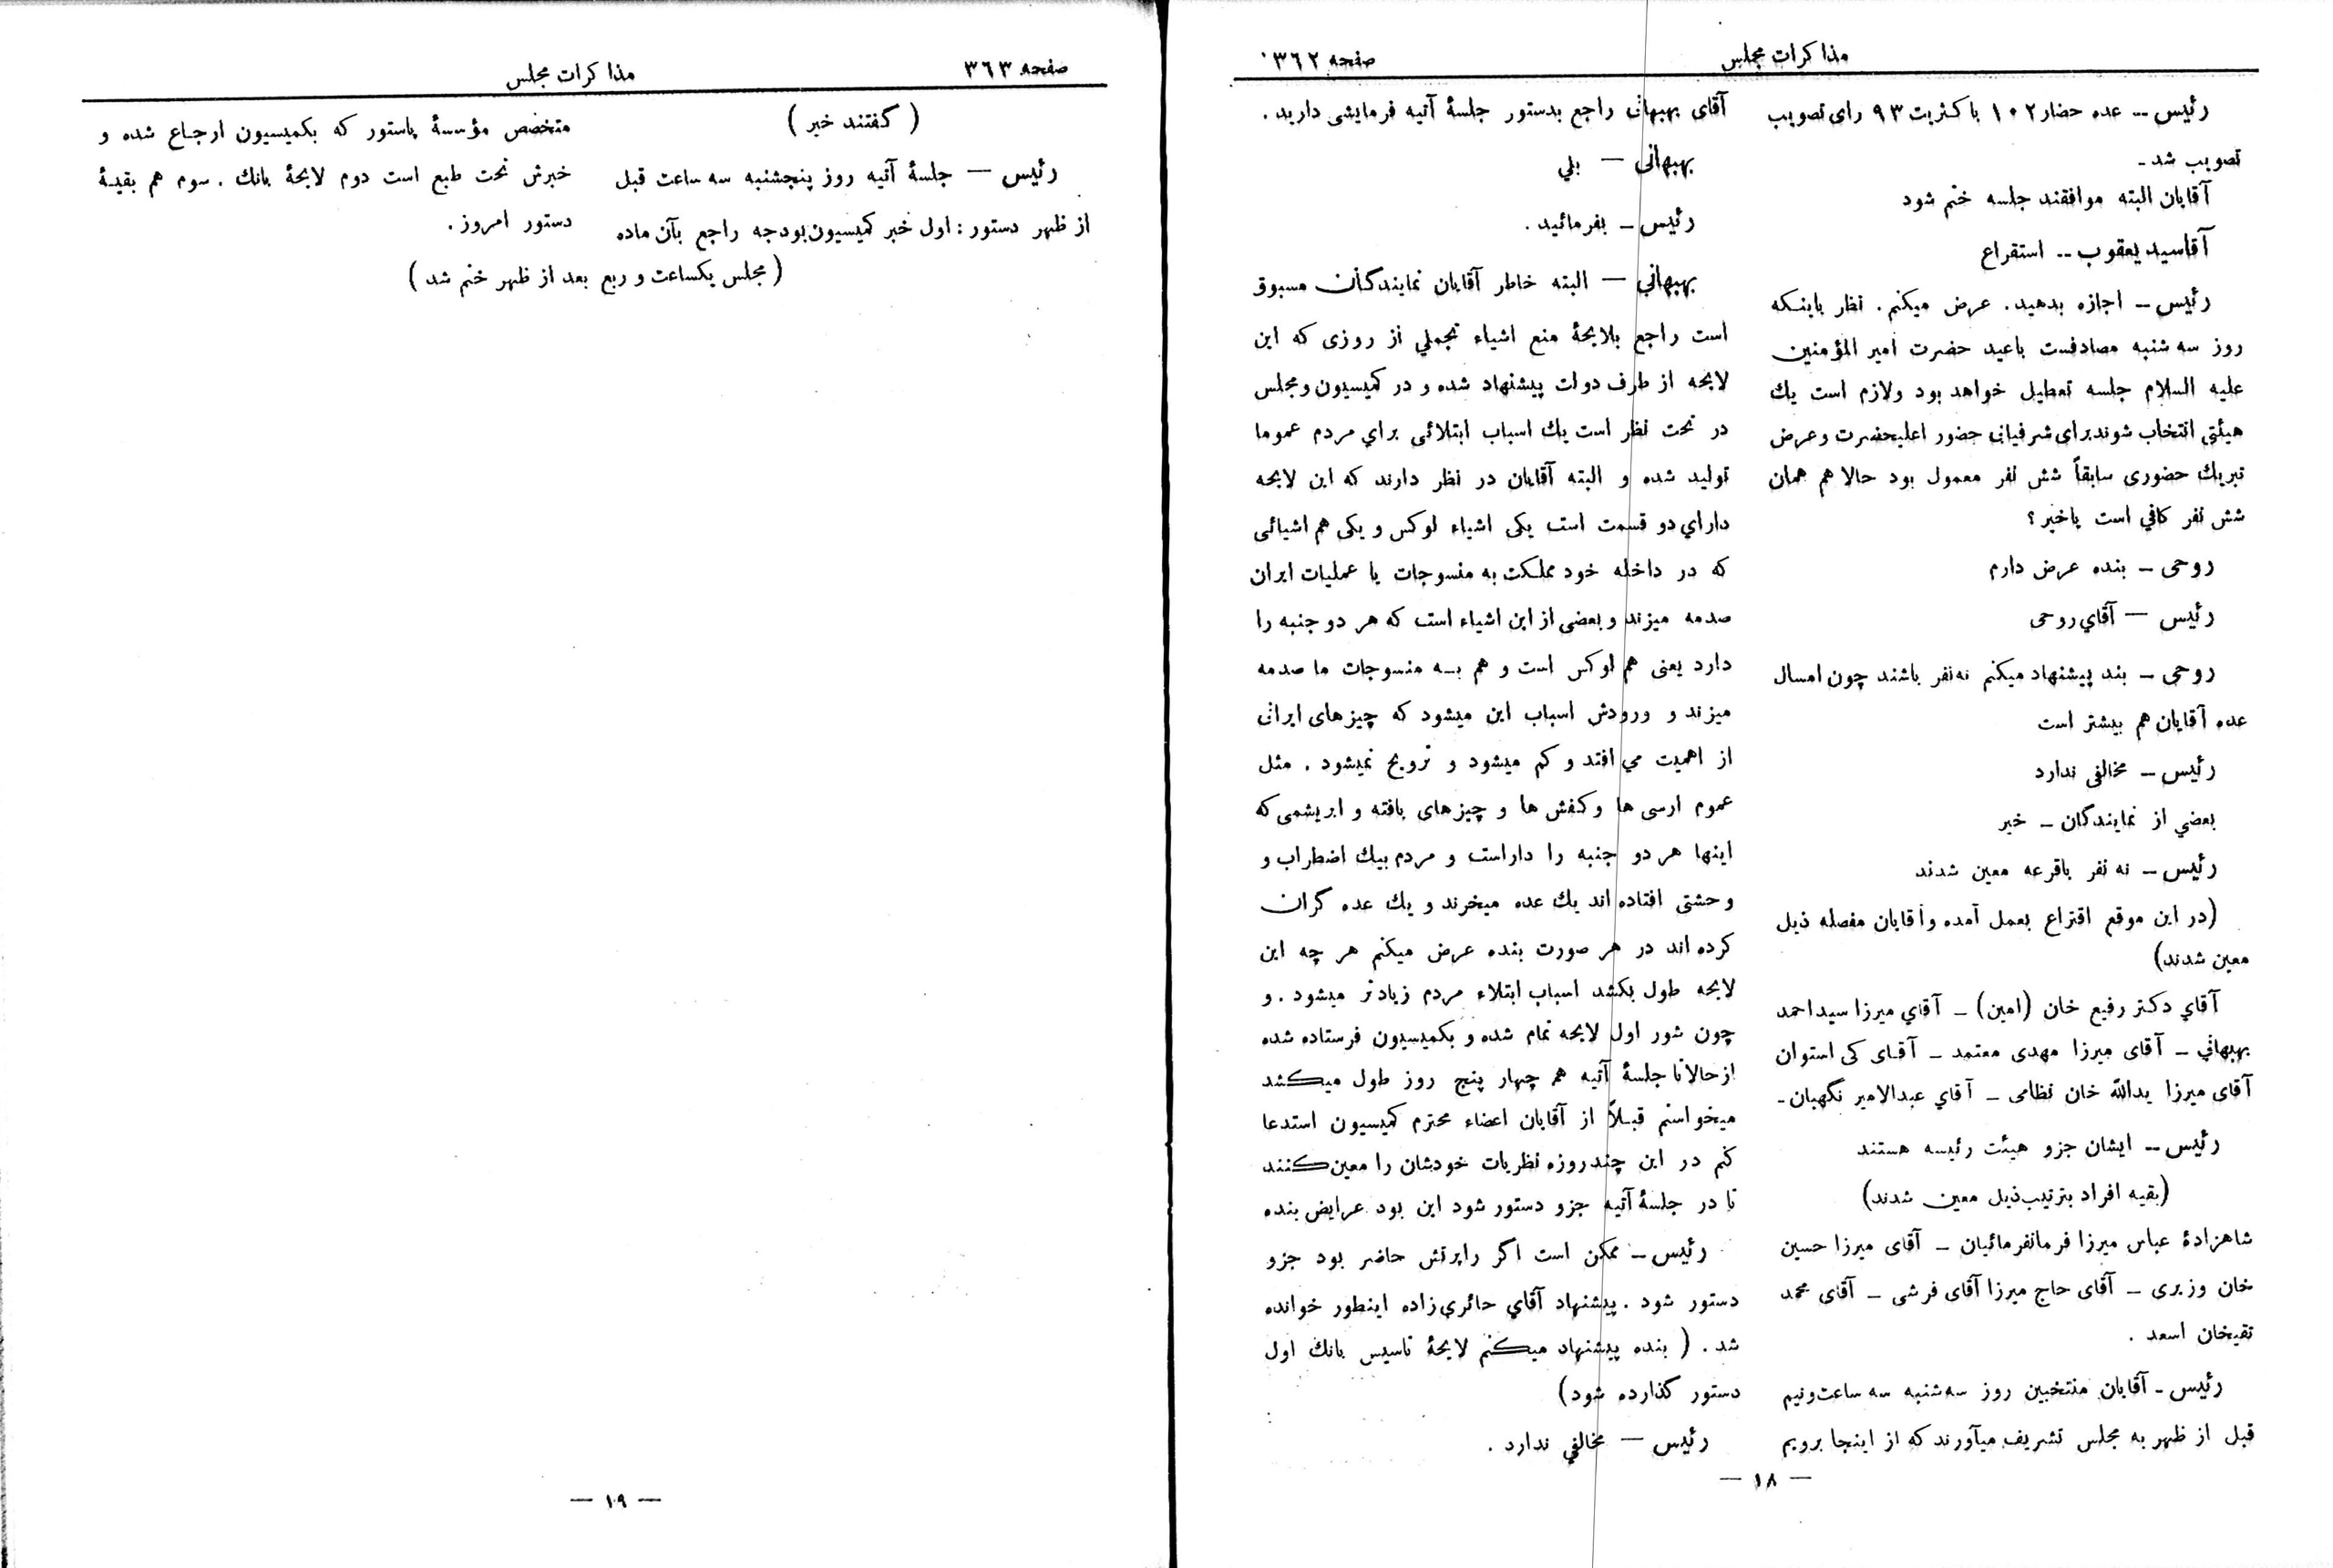 مذاکرات مجلس
صفحه ۳۶۲
رئیس ــ عده حضار ۱۰۲ باکثریت ۹۳ رای تصویب
تصویب شد ـ
آقایان البته موافقند جلسه ختم شود
آقاسید یعقوب ــ استقراع
رئیس ــ اجازه بدهید. عرض میکنم. نظر باینکه
روز سه شنبه مصادفست باعید حضرت امیر المؤمنین
علیه السلام جلسه تعطیل خواهد بود ولازم است یك
هیئتی انتخاب شوند برای شرفیابی حضور اعلیحضرت وعرض
تبریك حضوری سابقاً شش نفر معمول بود حالا هم همان
شش نفر کافي است یاخیر ؟
روحی ــ بنده عرض دارم
رئیس — آقاي روحی
روحی ــ بند پیشنهاد میکنم نه نفر باشند چون امسال
عده آقایان هم بیشتر است
رئیس ــ مخالفی ندارد
بعضي از نمایندگان ــ خیر
رئیس ــ نه نفر باقرعه معین شدند
(در این موقع اقتراع بعمل آمده وآقایان مفصله ذیل
معین شدند)
آقاي دکتر رفیع خان (امین) ــ آقاي میرزا سید احمد
بهبهانی ــ آقای میرزا مهدی معتمد ــ آقای کی استوان
آقای میرزا یدالله خان نظامی ــ آقاي عبدالامیر نگهبان ـ
رئیس ــ ایشان جزو هیئت رئیسه هستند
(بقیه افراد بترتیب ذیل معین شدند)
شاهزادهٔ عباس میرزا فرمانفرمائیان ــ آقای میرزا حسین
خان وزیری ــ آقای حاج میرزا آقای فرشی ــ آقای محمد
تقیخان اسعد .
رئیس ـ آقایان منتخبین روز سه شنبه سه ساعت ونیم
قبل از ظهر به مجلس تشریف میآورند که از اینجا برویم
آقای بهبهانی راجع بدستور جلسهٔ آتیه فرمایشی دارید .
بهبهانی — بلي
رئیس ــ بفرمائید .
بهبهاني — البته خاطر آقایان نمایندگان مسبوق
است راجع بلایحهٔ منع اشیاء تجملي از روزی که این
لایحه از طرف دولت پیشنهاد شده و در کمیسیون ومجلس
در تحت نظر است یك اسباب ابتلائی براي مردم عموما
تولید شده و البته آقایان در نظر دارند که این لایحه
داراي دو قسمت است یکی اشیاء لوکس و یکی هم اشیائی
که در داخله خود مملکت به منسوجات یا عملیات ایران
صدمه میزند و بعضی از این اشیاء است که هر دو جنبه را
دارد یعنی هم لوکس است و هم بـه منسوجات ما صدمه
میزند و ورودش اسباب این میشود که چیزهای ایرانی
از اهمیت مي افتد و کم میشود و ترویج نمیشود . مثل
عموم ارسی ها و کفش ها و چیزهای بافته و ابریشمی که
اینها هر دو جنبه را داراست و مردم بیك اضطراب و
وحشتی افتاده اند یك عده میخرند و یك عده گران
کرده اند در هر صورت بنده عرض میکنم هر چه این
لایحه طول بکشد اسباب ابتلاء مردم زیادتر میشود . و
چون شور اول لایحه تمام شده و بکمیسیون فرستاده شده
ازحالا تا جلسهٔ آتیه هم چهار پنج روز طول میکشد
میخواستم قبلاً از آقایان اعضاء محترم کمیسیون استدعا
کنم در این چندروزه نظریات خودشان را معین کنند
تا در جلسهٔ آتیه جزو دستور شود این بود عرایض بنده
رئیس ــ ممکن است اگر راپرتش حاضر بود جزو
دستور شود . پیشنهاد آقاي حائری زاده اینطور خوانده
شد . ( بنده پیشنهاد میکنم لایحهٔ تاسیس بانك اول
دستور گذارده شود)
رئیس — مخالفي ندارد .
— ۱۸ —
صفحه ۳۶۳
مذاکرات مجلس
( گفتند خیر )
رئیس — جلسهٔ آتیه روز پنجشنبه سه ساعت قبل
از ظهر دستور : اول خبر کمیسیون بودجه راجع بآن ماده
متخصص مؤسسهٔ پاستور که بکمیسیون ارجاع شده و
خبرش تحت طبع است دوم لایحهٔ بانك . سوم هم بقیهٔ
دستور امروز .
( مجلس یکساعت و ربع بعد از ظهر ختم شد )
— ۱۹ —